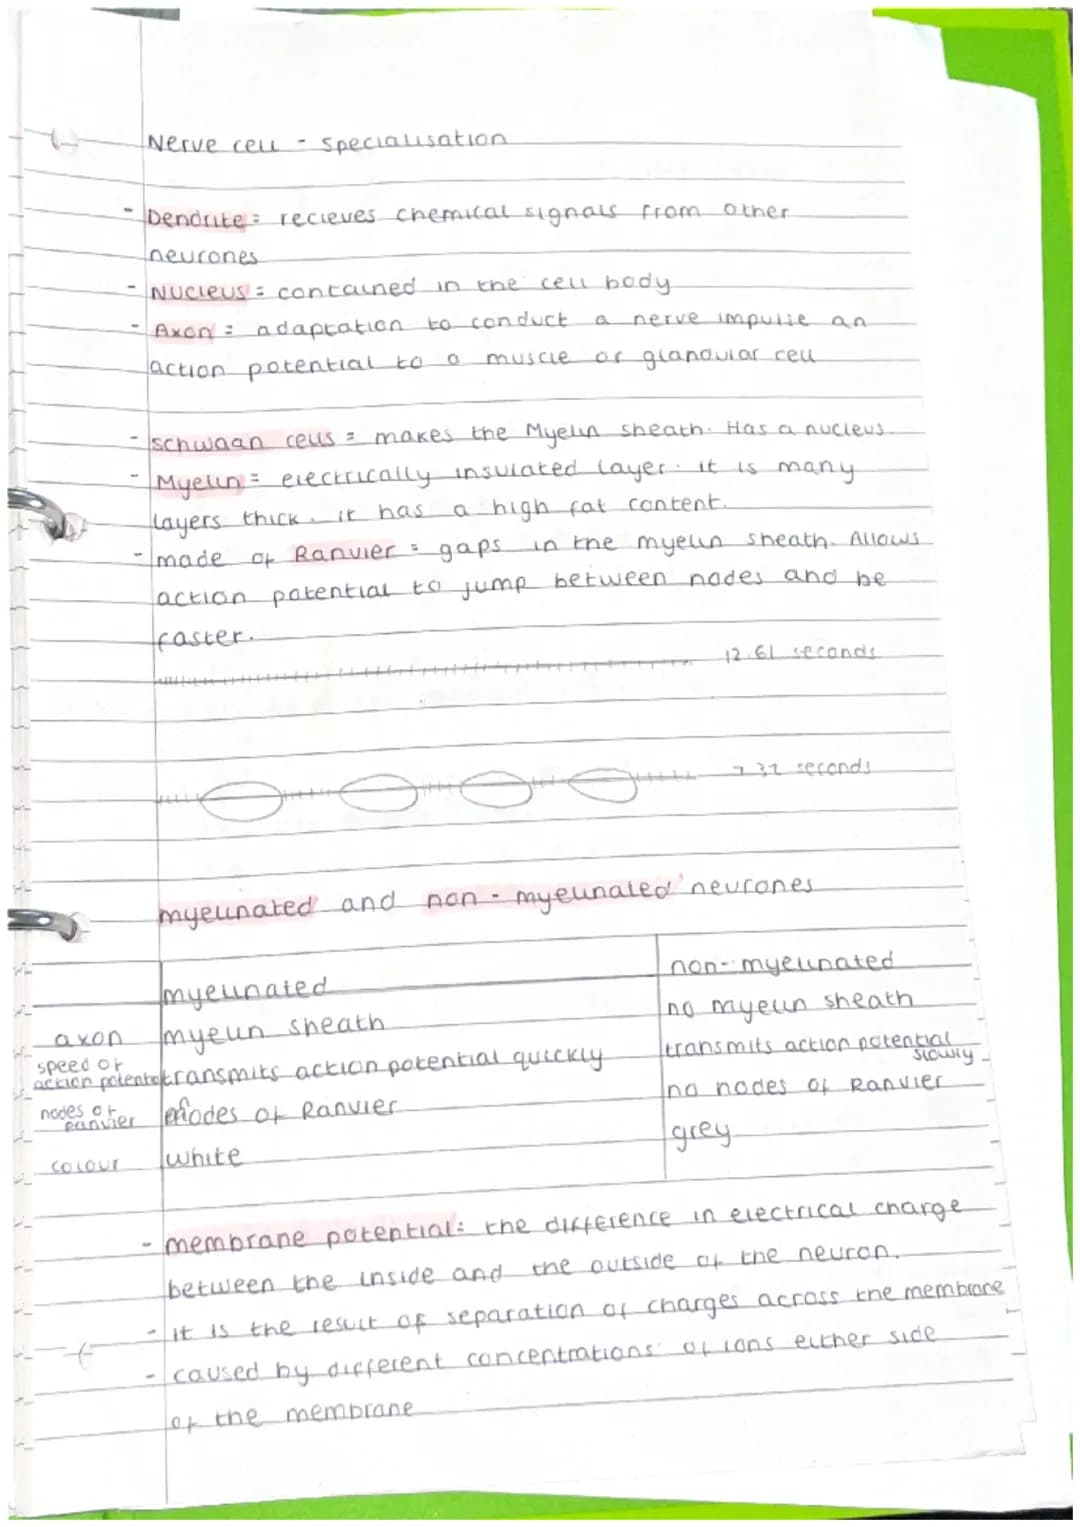 Nerve cell - specialisation
- Dendrite = recieves chemical signals from other
neurones
- Nucleus = contained in the cell body
- Axon = adaptation to conduct a nerve impulse an
action potential to a muscle or glandular cell
- schwaan cells = makes the Myelin sheath. Has a nucleus.
- Myelin = electrically insulated layer. it is many
layers thick. it has a high fat content.
- made of Ranvier = gaps in the myelin sheath. Allows
action potential to jump between nodes and be
faster.
12.61 seconds
7.32 seconds
myelinated and non-myelinated neurones
myelinated non-myelinated
axon myelin sheath no myelin sheath
speed of action potential transmits action potential quickly transmits action potential slowly
nodes of Ranvier nodes of Ranvier no nodes of Ranvier
colour white grey
- membrane potential: the difference in electrical charge
between the inside and the outside of the neuron.
- it is the result of separation of charges across the membrane
- caused by different concentrations of ions either side
of the membrane